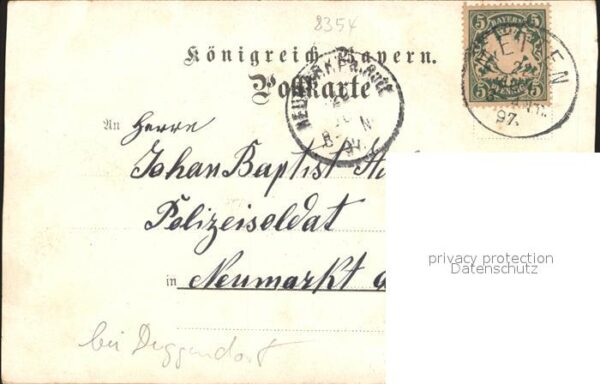 8354
Königreich Bayern.
Postkarte
5 BAYERN 5
5 5
97.
An Herrn
Johan Baptist
Polizeisoldat
in Neumarkt a
privacy protection
Datenschutz
bei Deggendorf